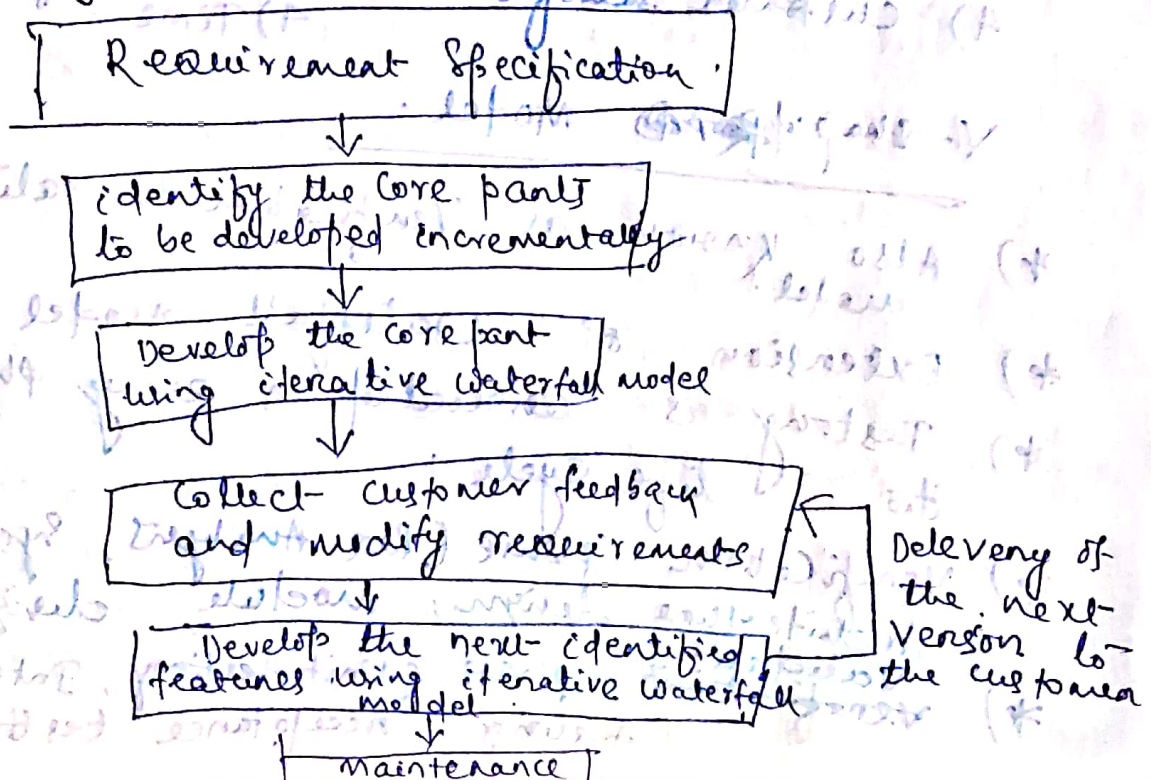 Requirement Specification.
identify the core parts
to be developed incrementally
Develop the core part
using iterative waterfall model
Collect customer feedback
and modify requirements
Develop the next identified
features using iterative waterfall
model.
Delevery of
the next
version to
the customer
Maintenance